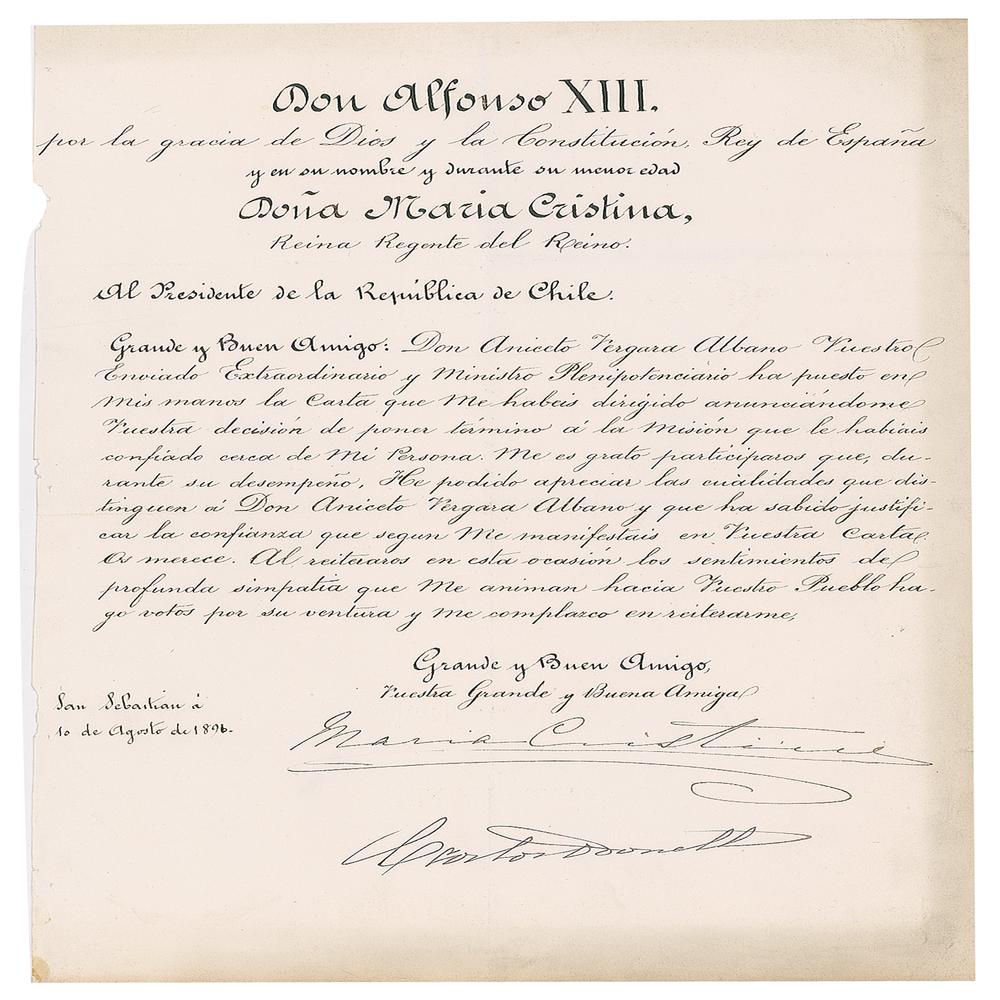 Don Alfonso XIII.
por la gracia de Dios y la Constitución, Rey de España
y en su nombre y durante su menor edad
Doña Maria Cristina,
Reina Regente del Reino.
Al Presidente de la República de Chile.
Grande y Buen Amigo: Don Aniceto Vergara Albano Vuestro
Enviado Extraordinario y Ministro Plenipotenciario ha puesto en
Mis manos la Carta que Me habeis dirigido anunciándome
Vuestra decisión de poner termino á la Misión que le habiais
confiado cerca de Mi Persona. Me es grato participaros que, du-
rante su desempeño, He podido apreciar las cualidades que dis-
tinguen á Don Aniceto Vergara Albano y que ha sabido justifi-
car la confianza que segun Me manifestais en Vuestra Carta
Os merece. Al reiteraros en esta ocasión los sentimientos de
profunda simpatia que Me animan hacia Vuestro Pueblo ha-
go votos por su ventura y Me complazco en reiterarme,
Grande y Buen Amigo,
Vuestra Grande y Buena Amiga
San Sebastian á
10 de Agosto de 1896.
Maria Cristina
Carlos O'Donell